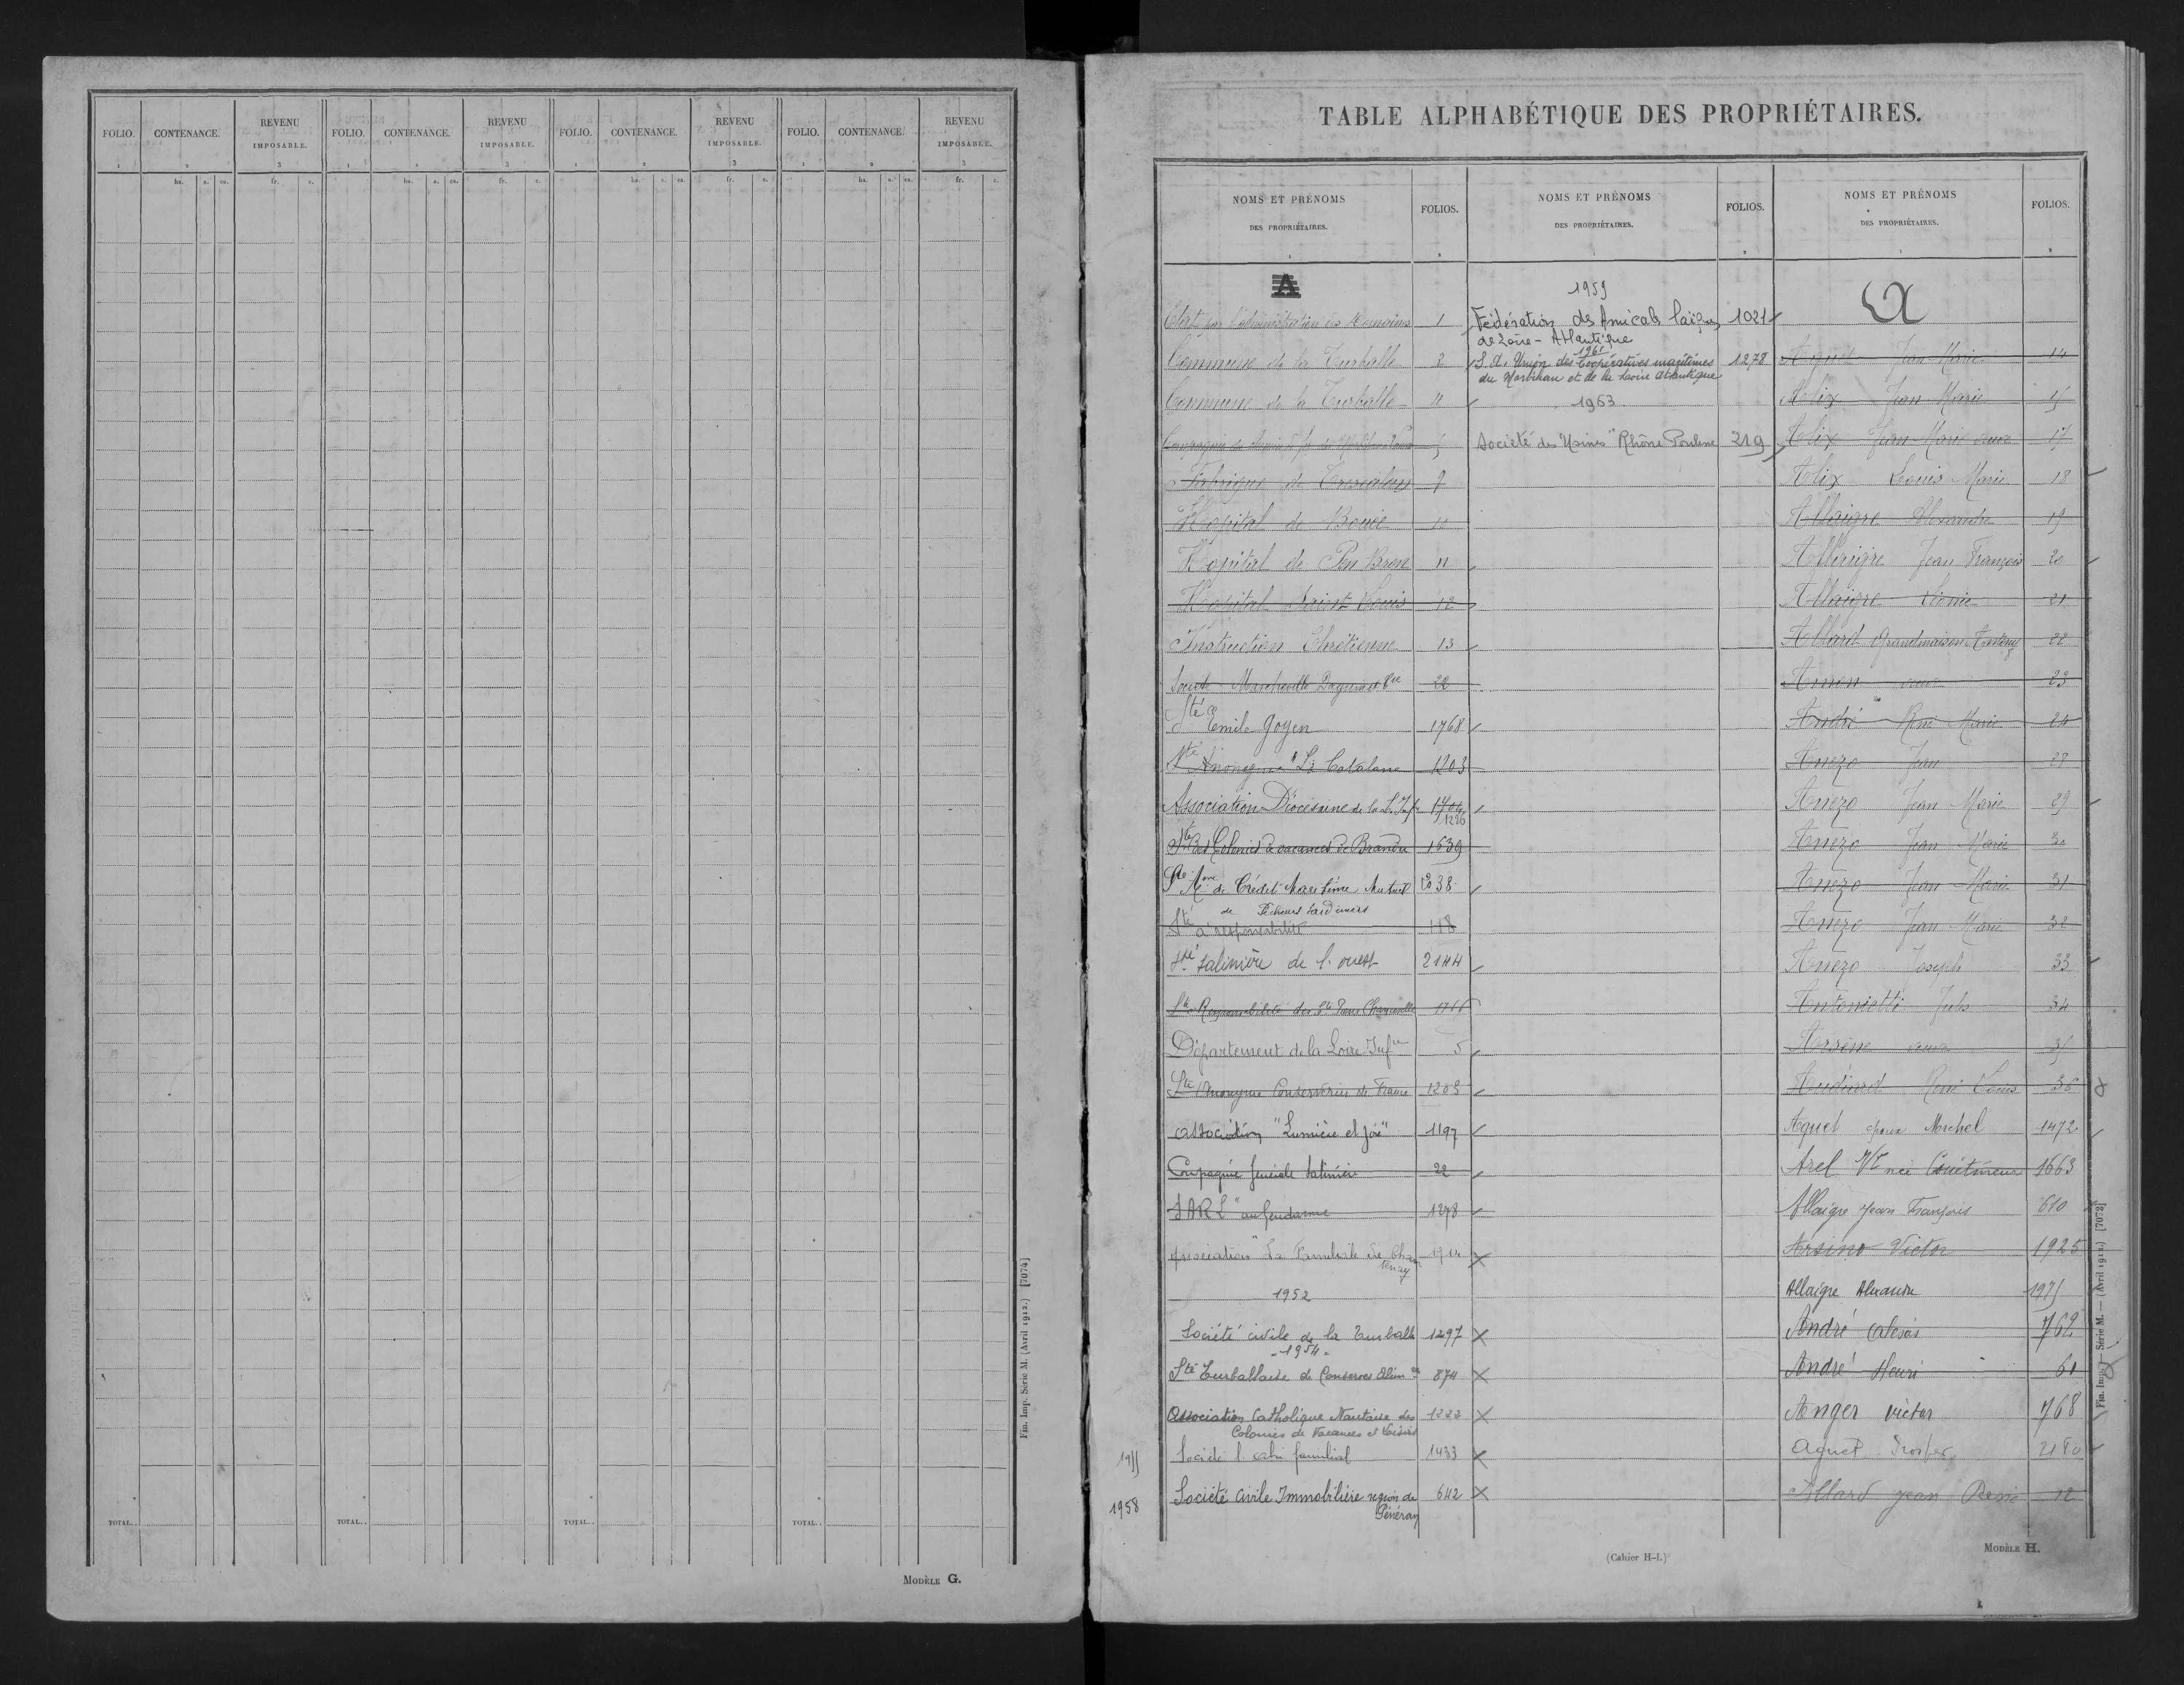 FOLIO. CONTENANCE. REVENU IMPOSABLE. FOLIO. CONTENANCE. REVENU IMPOSABLE. FOLIO. CONTENANCE. REVENU IMPOSABLE. FOLIO. CONTENANCE. REVENU IMPOSABLE.
1 2 3 1 2 3 1 2 3 1 2 3
ha. a. ca. fr. c. ha. a. ca. fr. c. ha. a. ca. fr. c. ha. a. ca. fr. c.
TOTAL.. TOTAL.. TOTAL.. TOTAL..
Fin. Imp. Série M. (Avril 1912.) [7074]
MODÈLE G.
TABLE ALPHABÉTIQUE DES PROPRIÉTAIRES.
NOMS ET PRÉNOMS
DES PROPRIÉTAIRES.
FOLIOS.
A
Etat par l'administration des Domaines 1
Commune de la Turballe 2
Commune de la Turballe 4
Fabrique de Trescalan
Hôpital de Bouée
Hôpital de Pen Bron 11
Hôpital Saint Louis 12
Instruction Chrétienne 13
Société 22
Sté Emile Goyen 1768
Sté Anonyme "La Catalane 1203
Association Diocésaine de la L. Infre 1704
1226
Sté des Colonies de vacances de Brandu 1639
Sté Ame de Crédit Maritime Mutuel 2038
de Pêcheurs Sardiniers
Sté à responsabilité 118
Sté salinière de l'ouest 2144
Sté Responsabilité
Département de la Loire Infre 5
Sté Anonyme Conserveries de France 1203
Association "Lumière et Joie" 1197
Compagnie générale salinière 22
SARL "au Gendarme 1278
Association "La Familiale de Chantenay
1952
Société civile de la Turballe 1297
- 1954 -
Sté Turballaise de Conserves Alimres 874
Association Catholique Nantaise des 1222
Colonies de Vacances et Loisirs
1955 Société l'abri familial 1433
1958 Société Civile Immobilière region de 642
Pénéran
NOMS ET PRÉNOMS
DES PROPRIÉTAIRES.
FOLIOS.
1959
Fédération des Amicales laïques 1021
de Loire-Atlantique
1961
S.A. Union des Coopératives maritimes 1278
du Morbihan et de la Loire Atlantique
1963
Société des Usines "Rhône Poulenc 319
NOMS ET PRÉNOMS
DES PROPRIÉTAIRES.
FOLIOS.
A
Aguet Jean Marie 14
Alix Jean Marie 15
Alix Jean Marie veuve 17
Alix Louis Marie 18
Allaigre Alexandre 19
Allaigre Jean François 20
Allaigre Léonie 21
Allard Grandmaison Antony 22
Amon veuve 23
André René Marie 24
Anezo Jean 28
Anezo Jean Marie 29
Anezo Jean Marie 30
Anezo Jean Marie 31
Anezo Jean Marie 32
Anezo Joseph 33
Antonietti Jules 34
Arsène veuve 35
Audinet René Louis 36
Aguet époux Michel 1472
Arel Vve née 1663
Allaigre Jean François 610
Arsino Victor 1925
Allaigre Alexandre 1975
André Alexis 762
André Henri 61
Anger Victor 768
Aguet Prosper 2180
Allard Jean René 12
Fin. Imp. — Série M. — (Avril 1912.) [7072]
(Cahier H-I.)
MODÈLE H.